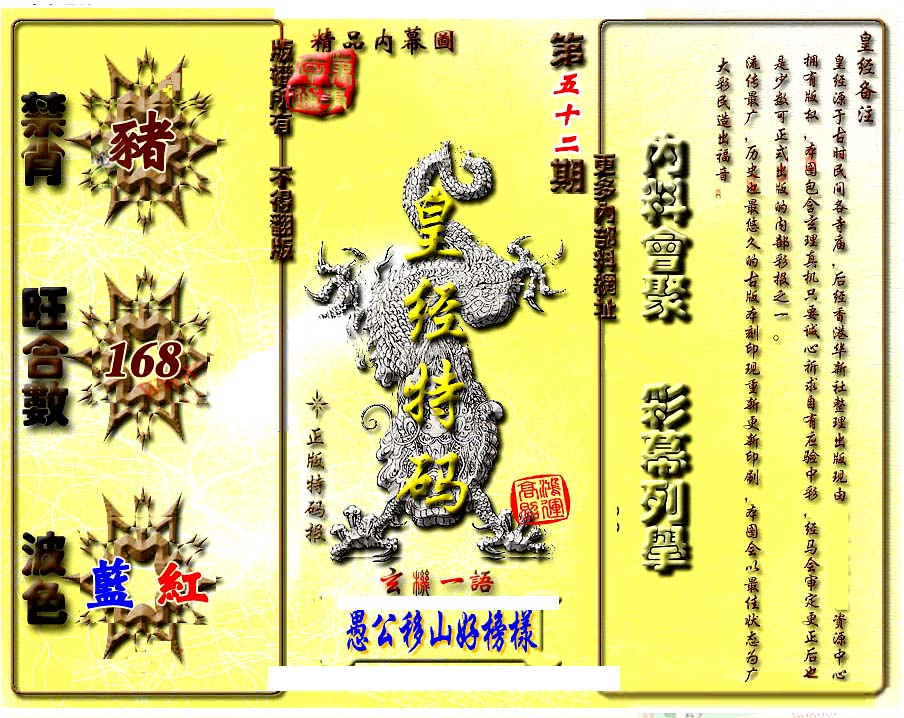 精品内幕圖
第五十二期
版權所有 不得翻版
更多內部料網址
禁肖
豬
旺合數
168
波色
藍 紅
皇经特码
正版特码报
鴻運高照
玄機一語
愚公移山好榜樣
内料會聚
彩幕列舉
皇经备注
皇经源于古时民间各寺庙,后经香港华新社整理出版现由 资源中心
拥有版权,本图包含玄理真机只要诚心祈求自有应验中彩,经马会审定更正后也
是少数可正式出版的内部彩报之一。
流传最广,历史也最悠久的古版本刻印现重新更新印刷,本图会以最佳状态为广
大彩民造出福音